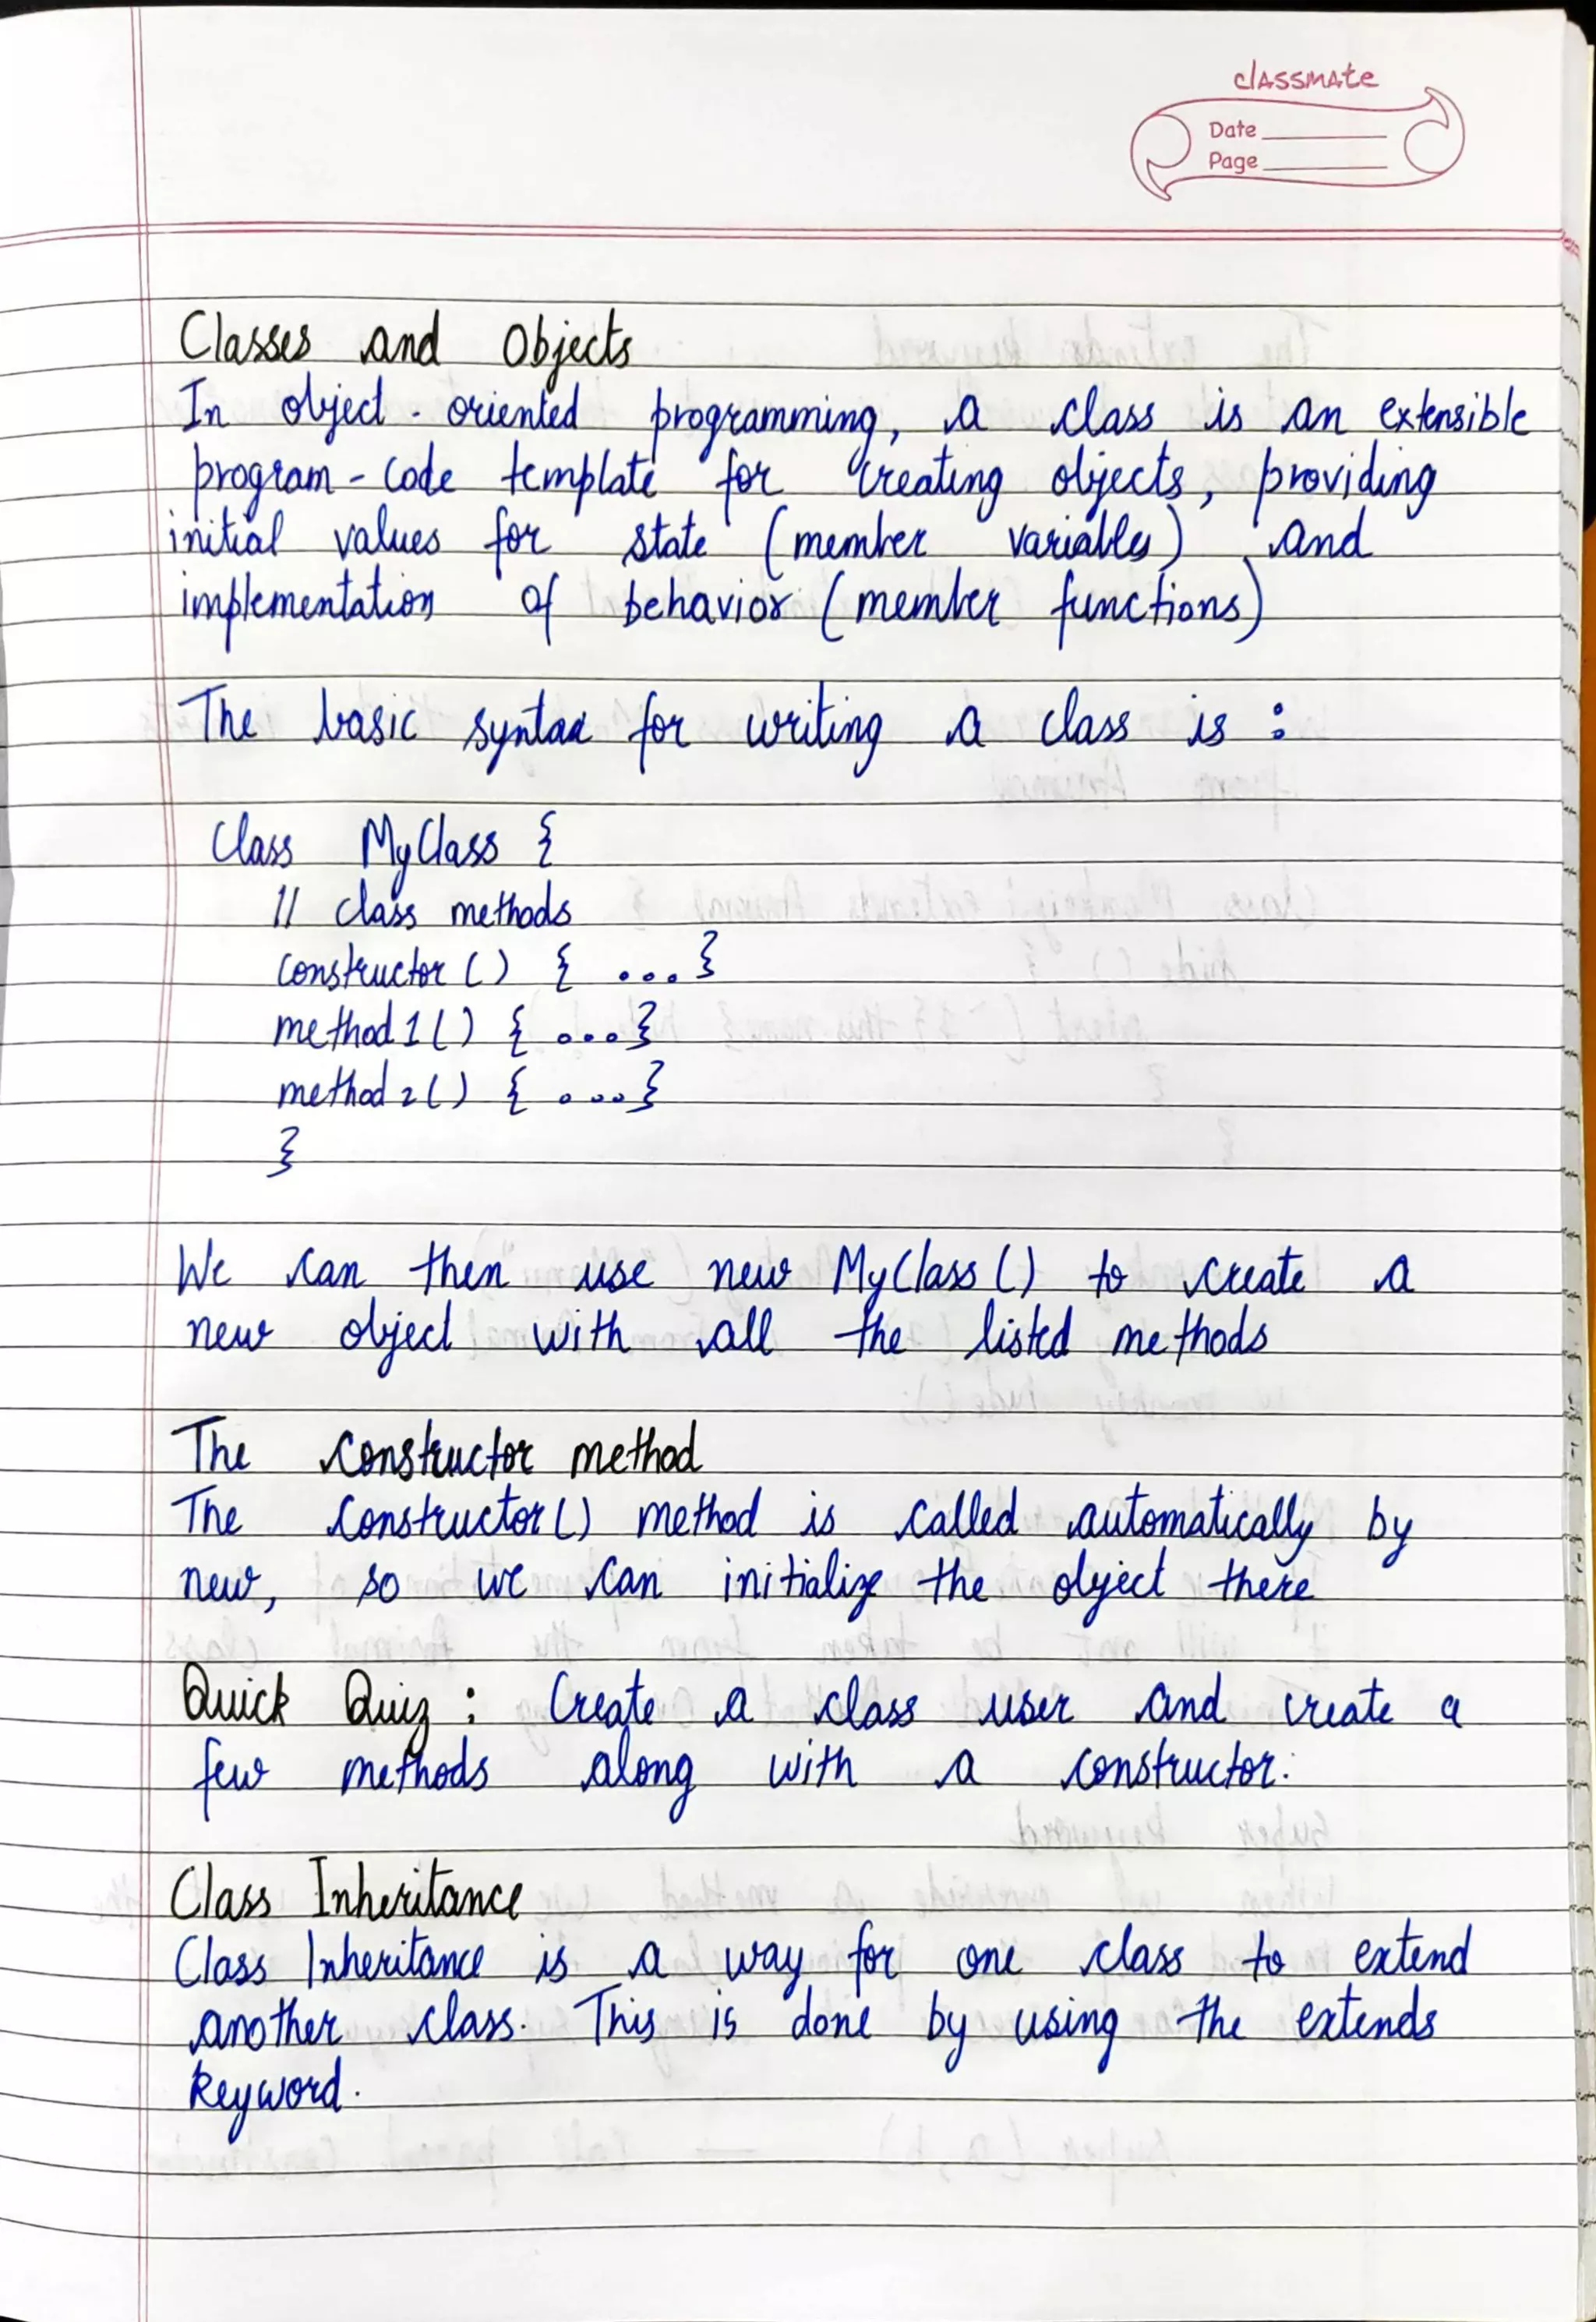 classmate
Date
Page
Classes and Objects
In object-oriented programming, a class is an extensible
program-code template for creating objects, providing
initial values for state (member variables) and
implementation of behavior (member functions)
The basic syntax for writing a class is :
Class MyClass {
// class methods
constructor () { ... }
method1() { ... }
method2() { .... }
}
We can then use new MyClass () to create a
new object with all the listed methods
The constructor method
The constructor() method is called automatically by
new, so we can initialize the object there
Quick Quiz : Create a class user and create a
few methods along with a constructor.
Class Inheritance
Class Inheritance is a way for one class to extend
another class. This is done by using the extends
keyword.